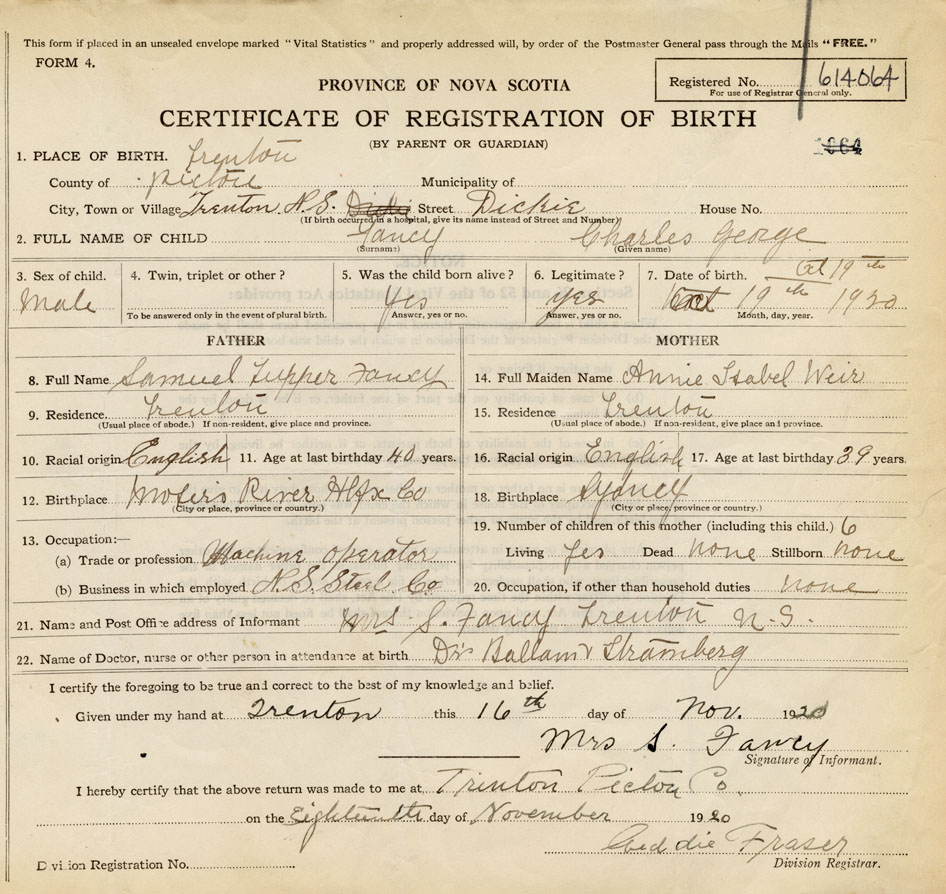 This form if placed in an unsealed envelope marked "Vital Statistics" and properly addressed will, by order of the Postmaster General pass through the Mails "FREE."
FORM 4.
PROVINCE OF NOVA SCOTIA
Registered No. 614064
For use of Registrar General only.
CERTIFICATE OF REGISTRATION OF BIRTH
(BY PARENT OR GUARDIAN)
1. PLACE OF BIRTH. Trenton
County of Pictou Municipality of
City, Town or Village Trenton N.S. Street Dickie House No.
(If birth occurred in a hospital, give its name instead of Street and Number)
2. FULL NAME OF CHILD Fancy Charles George
(Surname) (Given name)
3. Sex of child. 4. Twin, triplet or other? 5. Was the child born alive? 6. Legitimate? 7. Date of birth. Oct 19th
Male Yes Yes Oct 19th 1920
To be answered only in the event of plural birth. Answer, yes or no. Answer, yes or no. Month, day, year.
FATHER
8. Full Name Samuel Tupper Fancy
9. Residence. Trenton
(Usual place of abode.) If non-resident, give place and province.
10. Racial origin English 11. Age at last birthday 40 years.
12. Birthplace Mosers River Hfx Co
(City or place, province or country.)
13. Occupation:—
(a) Trade or profession Machine operator
(b) Business in which employed N.S. Steel Co
MOTHER
14. Full Maiden Name Annie Isabel Weir
15. Residence Trenton
(Usual place of abode.) If non-resident, give place and province.
16. Racial origin English 17. Age at last birthday 39 years.
18. Birthplace Sydney
(City or place, province or country.)
19. Number of children of this mother (including this child.) 6
Living Yes Dead none Stillborn none
20. Occupation, if other than household duties none
21. Name and Post Office address of Informant Mrs S. Fancy Trenton N.S.
22. Name of Doctor, nurse or other person in attendance at birth Drs Ballam & Stramberg
I certify the foregoing to be true and correct to the best of my knowledge and belief.
Given under my hand at Trenton this 16th day of Nov. 1920
Mrs S. Fancy
Signature of Informant.
I hereby certify that the above return was made to me at Trenton Pictou Co.
on the Eighteenth day of November 1920
Fraser
Division Registrar.
Division Registration No.